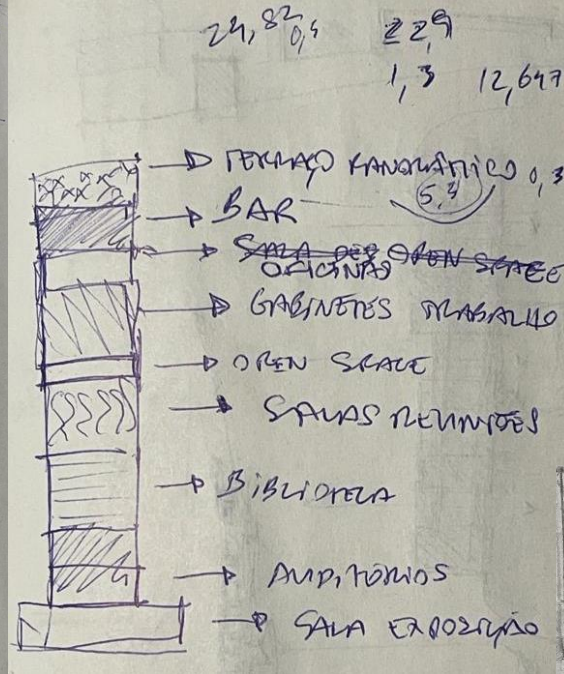 24,82 0,4 22,9
1,3 12,647
→ TERRAÇO PANORÂMICO 0,3
5,4
→ BAR
→ SALA DES OPEN SPACE
OFICINAS
→ GABINETES TRABALHO
→ OPEN SPACE
→ SALAS REUNIÕES
→ BIBLIOTECA
→ AUDITÓRIOS
→ SALA EXPOSIÇÃO